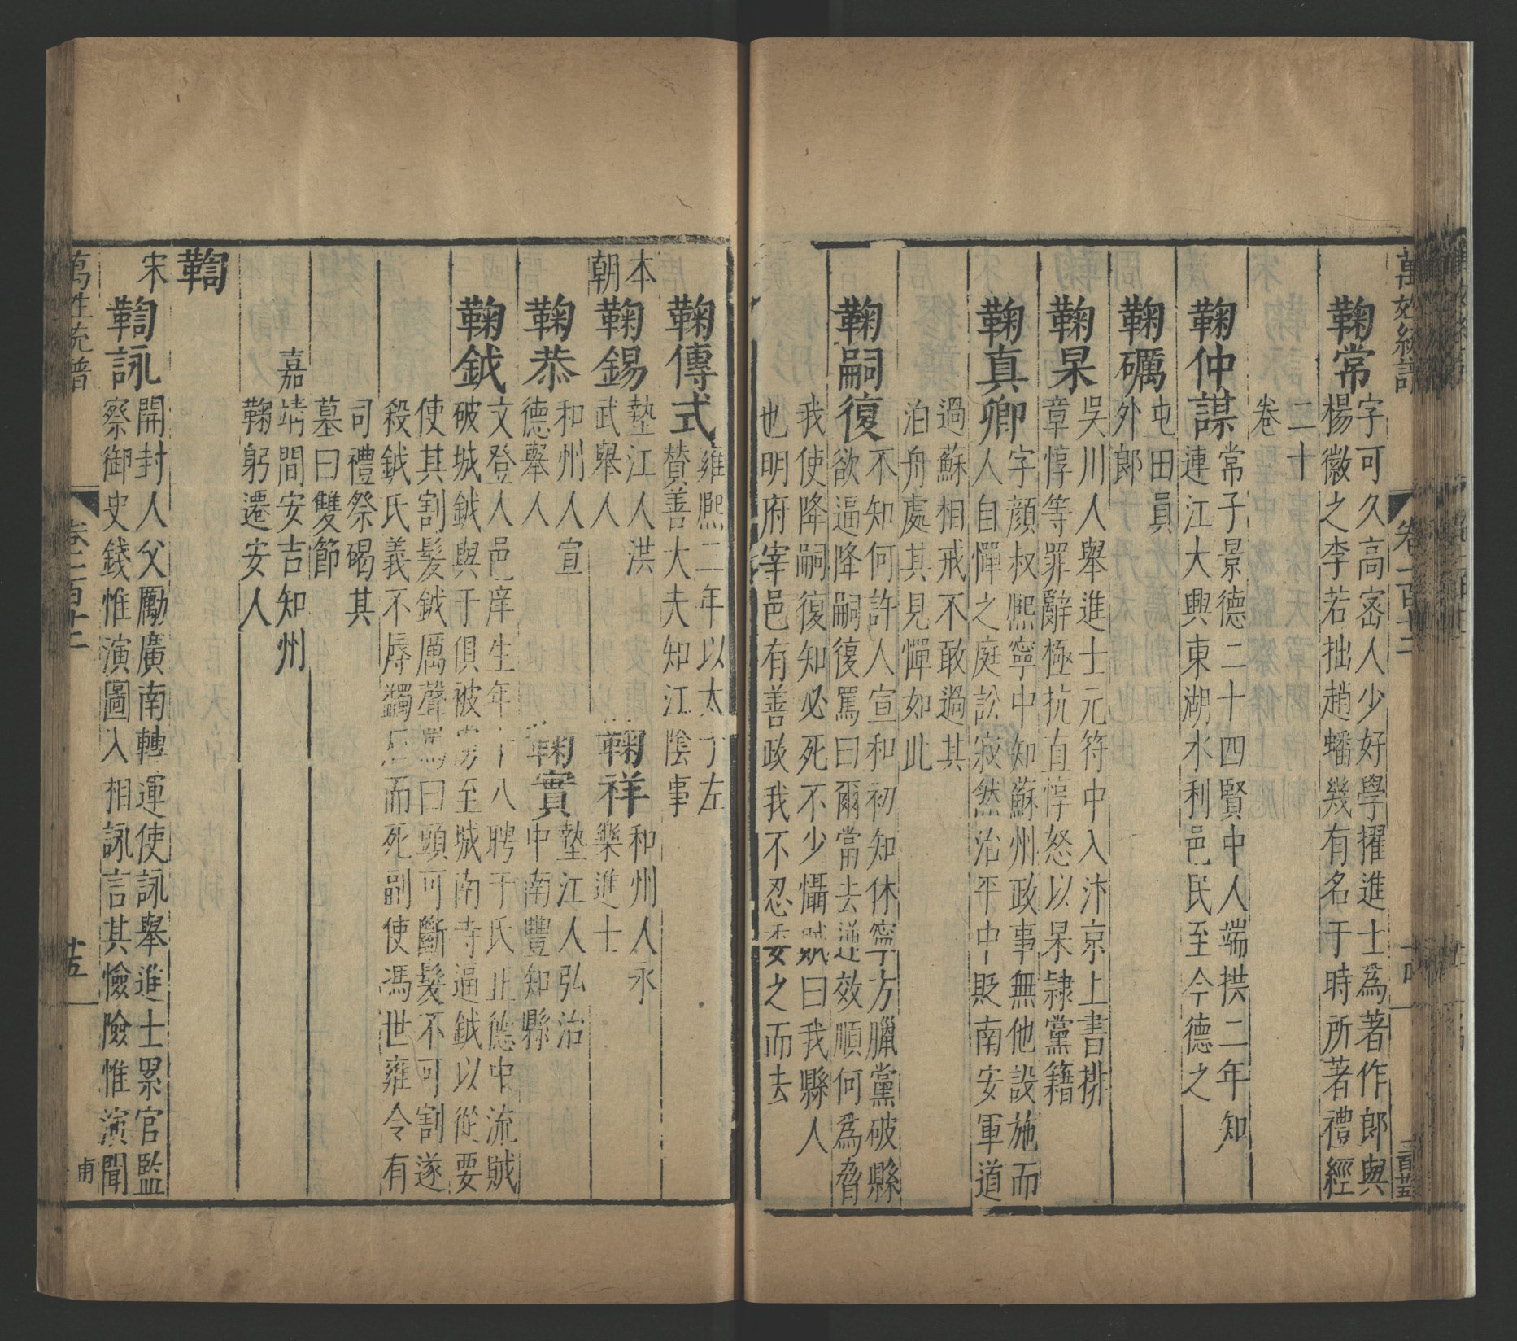 鞠常
字可久高密人少好學擢進士爲著作郎與
楊徽之李若拙趙蟠幾有名于時所著禮經
二十
卷
鞠仲謀
常子景德二十四賢中人端拱二年知
連江大興東湖水利邑民至今德之
鞠礪
屯田員
外郎
鞠杲
吳川人舉進士元符中入汴京上書排
章惇等罪辭極抗直惇怒以杲隸黨籍
鞠真卿
字顔叔熙寧中知蘇州政事無他設施而
人自憚之庭訟寂然治平中貶南安軍道
過蘇相戒不敢過其
泊舟處其見憚如此
鞠嗣復
不知何許人宣和初知休寧方臘黨破縣
欲逼降嗣復罵曰爾當去逆效順何爲脅
我使降嗣復知必死不少懾賊曰我縣人
也明府宰邑有善政我不忍 之而去
鞠傳式
雍熙二年以太子左
贊善大夫知江陰事
本
朝
鞠錫
墊江人洪
武舉人
鞠祥
和州人永
樂進士
鞠恭
和州人宣
德舉人
鞠實
墊江人弘治
中南豐知縣
鞠鉞
文登人邑庠生年十八聘于氏正德中流賊
破城鉞與于俱被虜至城南寺逼鉞以從要
使其割髮鉞厲聲罵曰頭可斷髮不可割遂
殺鉞氏義不辱 而死副使馮世雍令有
司禮祭碣其
墓曰雙節
嘉
靖間安吉知州
鞠躬遷安人
鞫
宋
鞫詠
開封人父勵廣南轉運使詠舉進士累官監
察御史錢惟演圖入相詠言其憸險惟演聞
萬姓統譜
卷一百十二
廿五